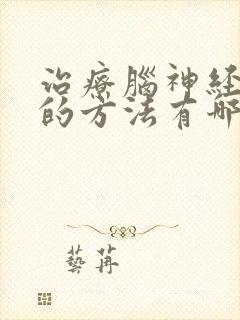 治療腦神經
的方法有哪
藝苒